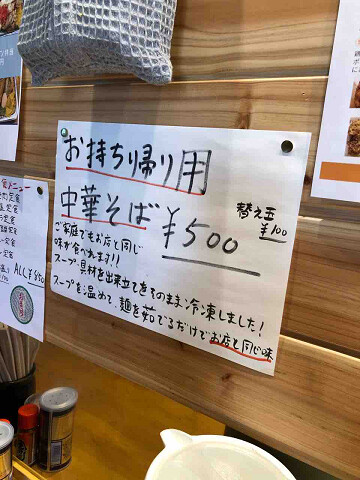 お持ち帰り用
中華そば ¥500
替え玉
¥100
ご家庭でもお店と同じ
味が食べれます!!
スープ・具材を出来立てをそのまま冷凍しました!
スープを温めて、麺を茹でるだけでお店と同じ味
ALL¥850